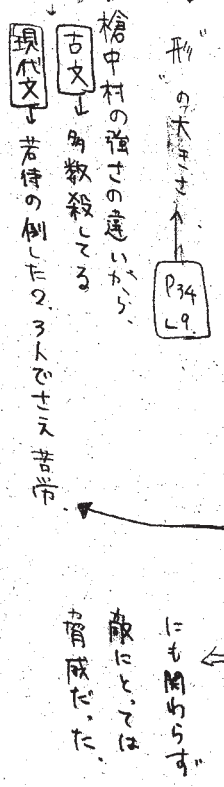 "形"の大きさ
P34
L9.
槍中村の強さの違いから、
古文→多数殺してる
現代文→若侍の倒した2、3人でさえ苦労
にも関わらず
敵にとっては
脅威だった。